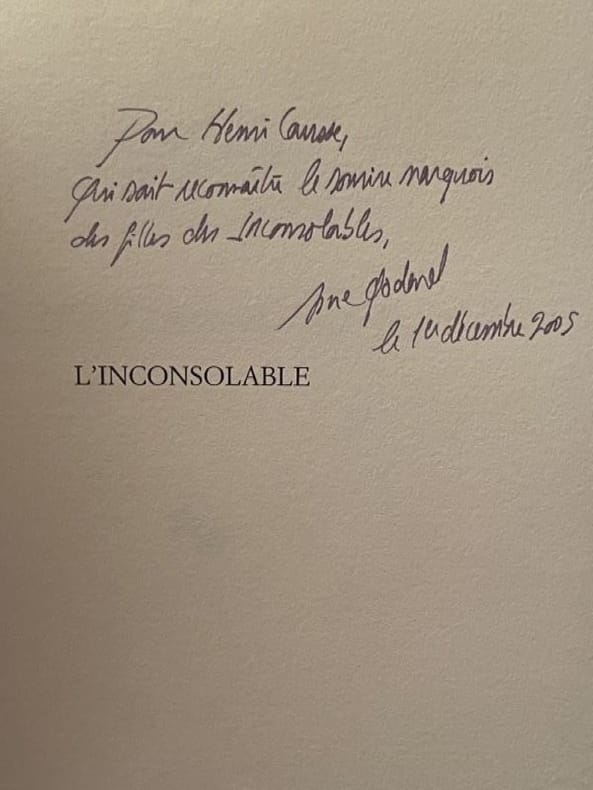 Pour Henri Causse,
qui sait reconnaître le sourire narquois
des filles des Inconsolables,
Anne Godard
le 1er décembre 2005
L'INCONSOLABLE